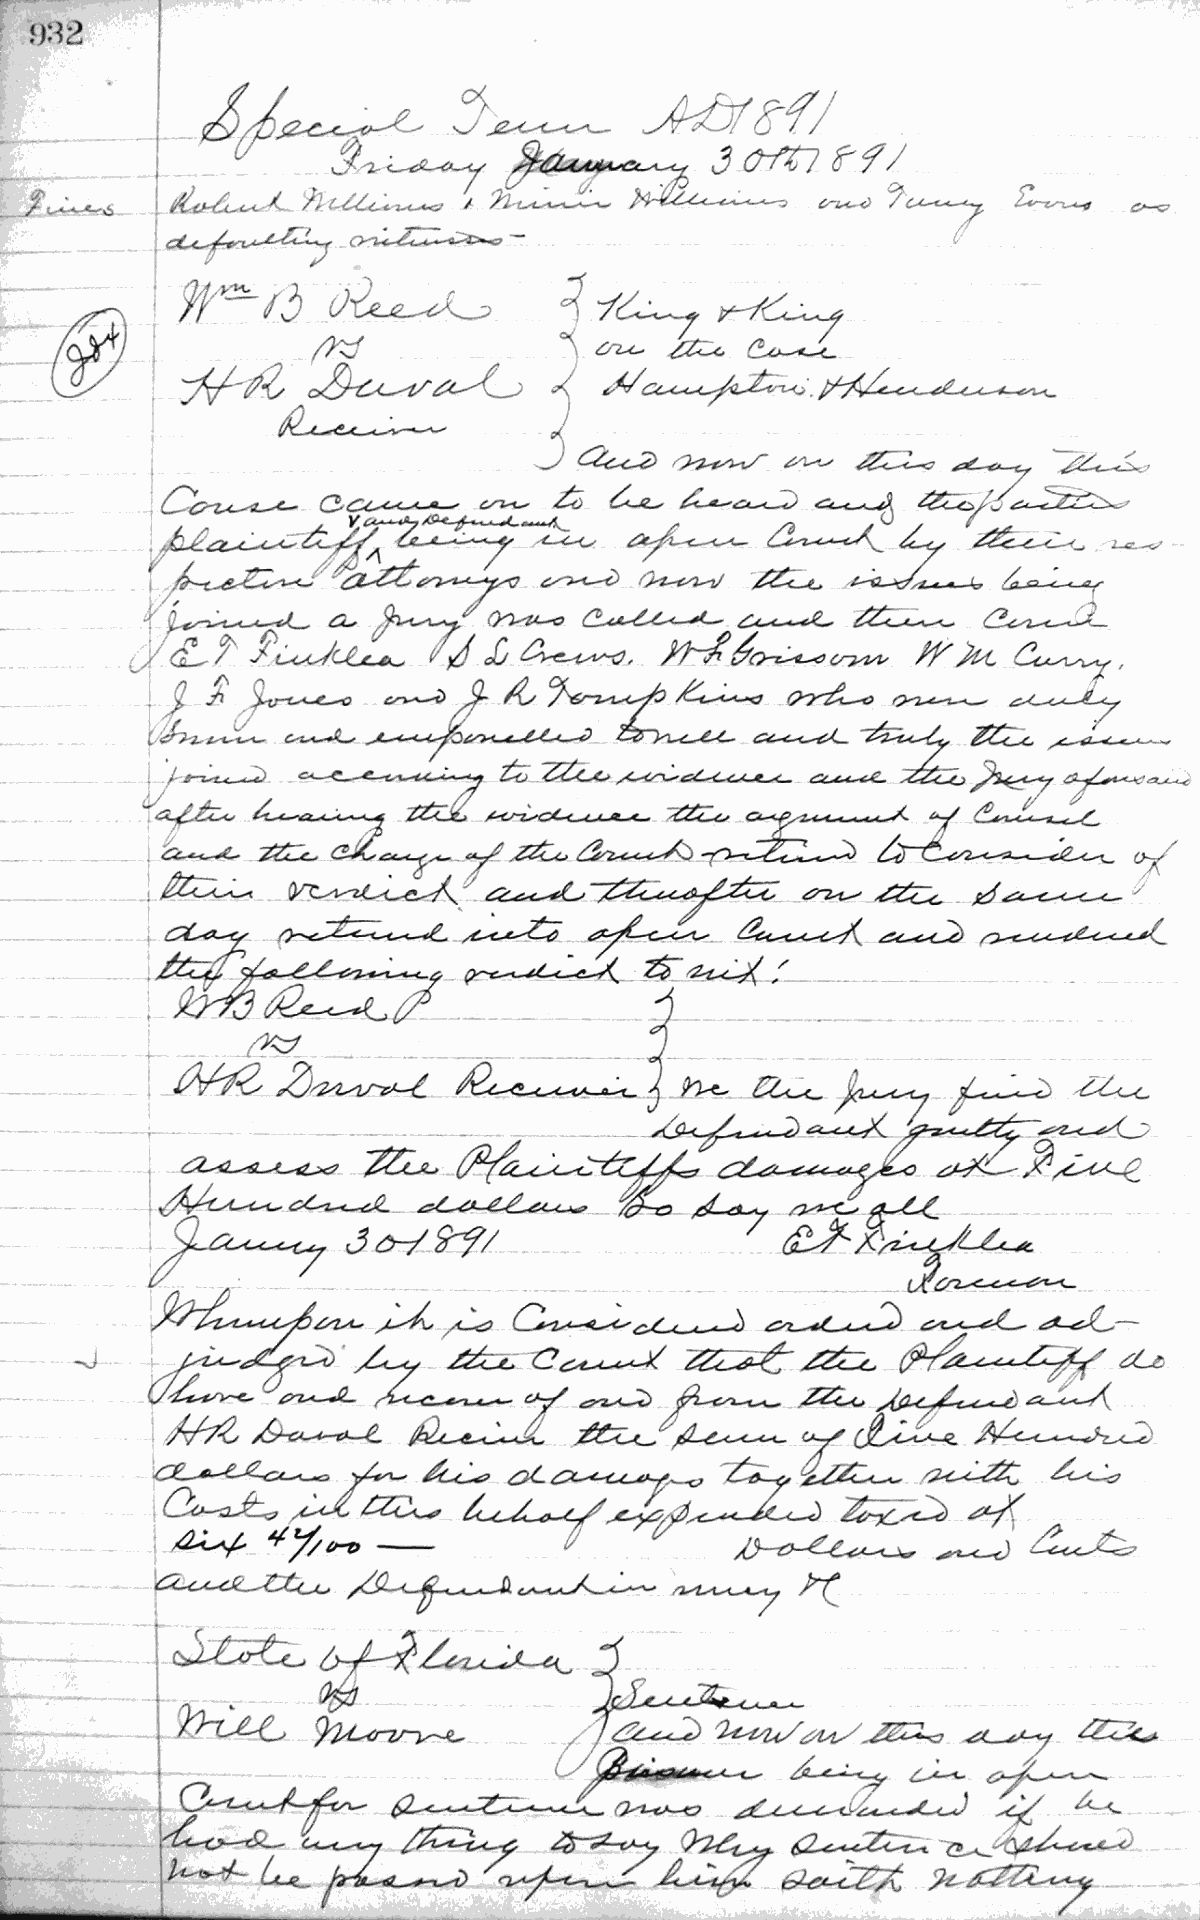 932
Special Term AD 1891
Friday January 30th 1891
Fines Robert Williams & Minnie Williams and Evans as
defaulting witnesses -
Wm B Reed } King & King
vs } on the case
Jdt
H R Duval } Hampton & Henderson
Receiver
} And now on this day this
Cause came on to be heard and the parties
plaintiff and Defendant being in open Court by their res-
pective attorneys and now the issues being
joined a Jury was called and then came
E T Finklea S L Crews. W F Grissom W M Curry.
J F Jones and J R Tompkins who were duly
Sworn and empanelled to well and truly the issue
joined according to the evidence and the Jury aforesaid
after hearing the evidence the argument of Counsel
and the charge of the Court retired to consider of
their verdict and thereafter on the same
day returned into open Court and rendered
the following verdict to wit:
W B Reed P }
vs
H R Duval Receiver } We the Jury find the
Defendant guilty and
assess the Plaintiffs damages at Five
Hundred dollars So Say we all
January 30 1891 E T Finklea
Foreman
Whereupon it is Considered ordered and ad-
judged by the Court that the Plaintiff do
have and recover of and from the Defendant
H R Duval Receiver the sum of Five Hundred
dollars for his damages together with his
Costs in this behalf expended taxed at
Six 42/100 — Dollars and Cents
and the Defendant in mercy &c
State of Florida }
vs } Sentence
Will Moore } And now on this day this
Prisoner being in open
Court for sentence was demanded if he
had any thing to say Why sentence should
not be passed upon him saith nothing